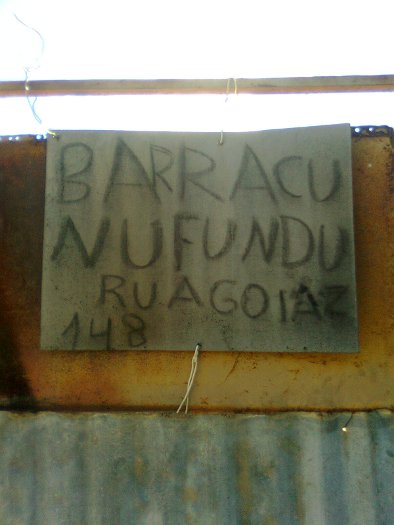 BARRACU
NUFUNDU
RUAGOIAZ
148